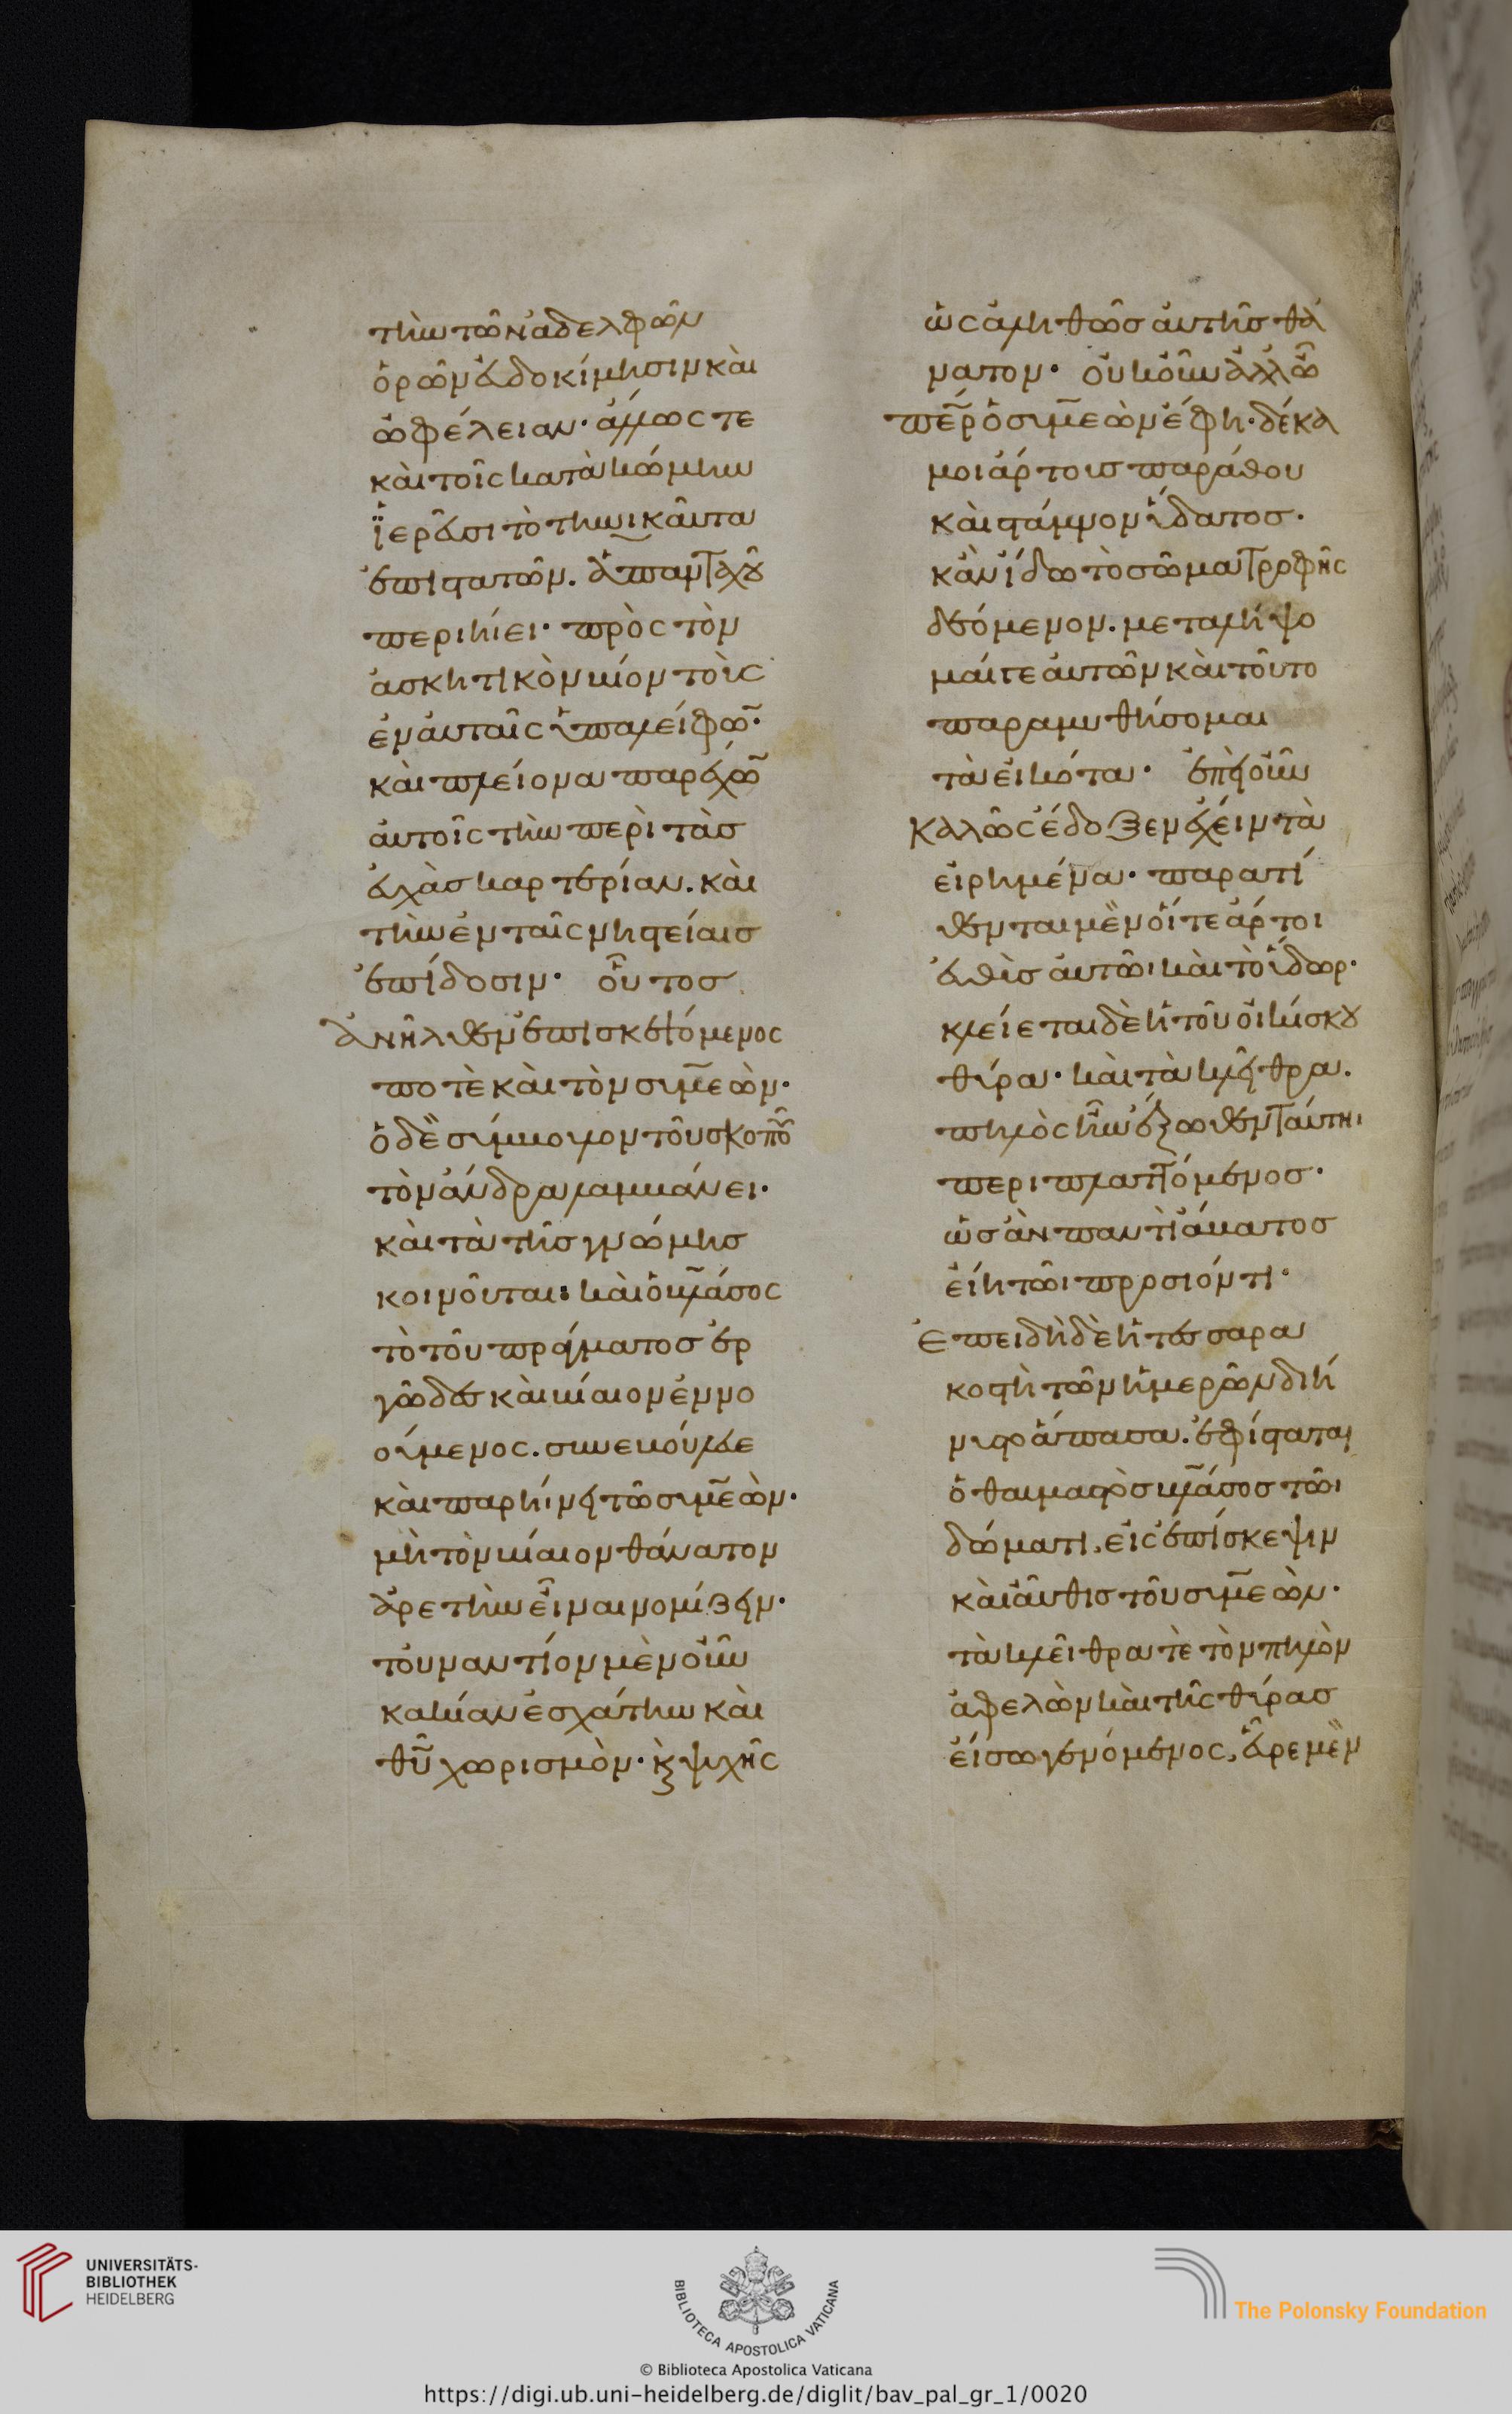 τὴν τῶν ἀδελφῶν
ὁρῶν εὐδοκίμησιν καὶ
ὠφέλειαν· ἄλλως τε
καὶ τοῖς κατὰ κώμην
ἱερεῦσι τὸ τηνικαῦτα
ἐπιστατῶν. ἁπανταχοῦ
περιήιει· πρὸς τὸν
ἀσκητικὸν βίον τοὺς
ἐν αὐταῖς ὑπαλείφω̅·
καὶ πλείονα παρέχω̅
αὐτοῖς τὴν περὶ τὰσ
εὐχὰσ καρτερίαν. καὶ
τὴν ἐν ταῖς νηστείαισ
ἐπίδοσιν· οὗτοσ
ἀνῆλθεν ἐπισκεπτόμενος
ποτὲ καὶ τὸν συμεὼν·
ὁ δὲ σύμβουλον τοῦ σκοποῦ
τὸν ἄνδρα λαμβάνει·
καὶ τὰ τῆσ γνώμησ
κοινοῦται· καὶ ὁ βλάσος
τὸ τοῦ πράγματοσ ἐρ
γῶδεσ καὶ βίαιον ἐννο
ούμενος. συνεβούλευε
καὶ παρήινει τῶ συμεὼν·
μὴ τὸν βίαιον θάνατον
ἀρετὴν εἶναι νομίζειν·
τοὐναντίον μὲν οὖν
κακίαν ἐσχάτην καὶ
θυ̅ χωρισμὸν· κ̀ ψυχῆς
ὡς ἀληθῶσ αὐτῆσ θά
νατον· οὐκοῦν ἀλλ' ὦ
πε̅ρ ὁ συμεὼν ἔφη· δέκα
μοι ἄρτουσ παράθου
καὶ στάμνον ὕδατοσ·
κἂν ἴδω τὸ σῶμα τροφῆς
δεόμενον. μεταλήψο
μαί τε αὐτῶν καὶ τοῦτο
παραμυθήσομαι
τὰ εἰκότα· ἐπεὶ οὖν
καλῶς ἔδοξεν ἔχειν τὰ
εἰρημένα· παρατί
θενται μὲν οἵ τε ἄρτοι
εὐθὺσ αὐτῶι καὶ τὸ ὕδωρ·
κλείεται δὲ ἡ τοῦ οἰκίσκου
θύρα· καὶ τὰ κλεῖθρα.
πηλὸς ἦν ἔξωθεν ταύτηι
περιπλαττόμενοσ·
ὡσ ἂν παντὶ ἄβατοσ
εἴη τῶι προσιόντι·
Ἐπειδὴ δὲ ἡ τεσσαρα
κοστὴ τῶν ἡμερῶν διή
νυστο ἅπασα. ἐφίσταται
ὁ θαυμαστὸσ βλάσοσ τῶι
δώματι, εἰς ἐπίσκεψιν
καὶ αὖθισ τοῦ συμεὼν·
τὰ κλεῖθρα τὲ τὸν πηλὸν
ἀφελὼν καὶ τῆς θύρασ
εἴσω γενόμενος, εὗρε μὲν
UNIVERSITÄTS-
BIBLIOTHEK
HEIDELBERG
BIBLIOTECA APOSTOLICA VATICANA
© Biblioteca Apostolica Vaticana
The Polonsky Foundation
https://digi.ub.uni-heidelberg.de/diglit/bav_pal_gr_1/0020